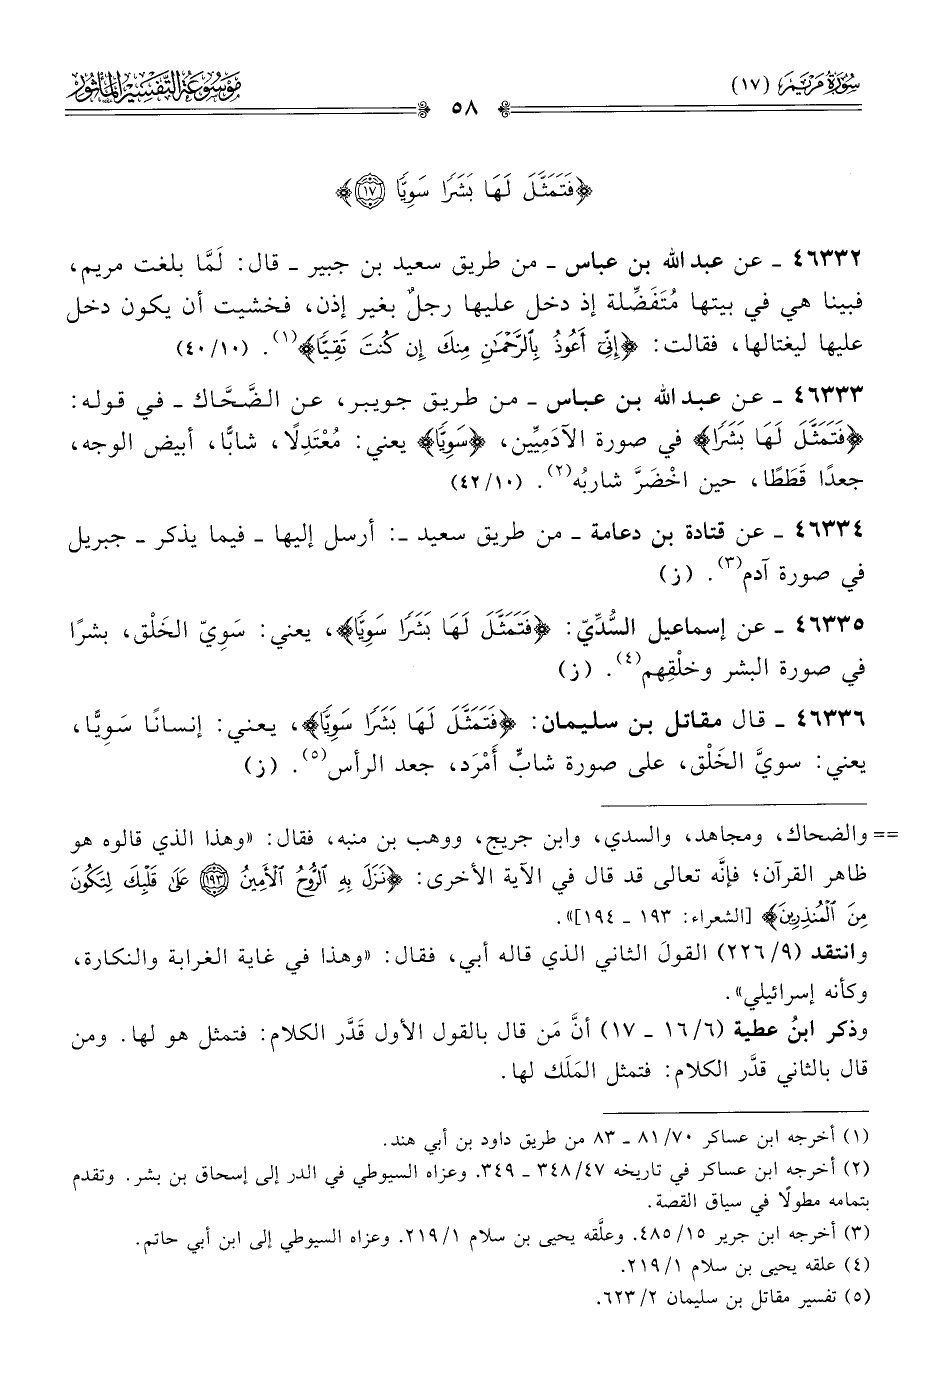 سُورَةُ مَرْيَمَ (١٧)
٥٨
مَوْسُوعَةُ التَّفْسِيرِ المَأْثُور
﴿فَتَمَثَّلَ لَهَا بَشَرًا سَوِيًّا ۝١٧﴾
٤٦٣٣٢ ـ عن عبد الله بن عباس ـ من طريق سعيد بن جبير ـ قال: لَمَّا بلغت مريم،
فبينا هي في بيتها مُتَفَضِّلة إذ دخل عليها رجلٌ بغير إذن، فخشيت أن يكون دخل
عليها ليغتالها، فقالت: ﴿إِنِّي أَعُوذُ بِالرَّحْمَٰنِ مِنكَ إِن كُنتَ تَقِيًّا﴾(١). (١٠/٤٠)
٤٦٣٣٣ ـ عن عبد الله بن عباس ـ من طريق جويبر، عن الضَّحَّاك ـ في قوله:
﴿فَتَمَثَّلَ لَهَا بَشَرًا﴾ في صورة الآدَمِيِّين، ﴿سَوِيًّا﴾ يعني: مُعْتَدِلًا، شابًّا، أبيض الوجه،
جعدًا قَطَطًا، حين اخْضَرَّ شاربُه(٢). (١٠/٤٢)
٤٦٣٣٤ ـ عن قتادة بن دعامة ـ من طريق سعيد ـ: أرسل إليها ـ فيما يذكر ـ جبريل
في صورة آدم(٣). (ز)
٤٦٣٣٥ ـ عن إسماعيل السُّدِّيّ: ﴿فَتَمَثَّلَ لَهَا بَشَرًا سَوِيًّا﴾، يعني: سَوِيّ الخَلْق، بشرًا
في صورة البشر وخلْقِهم(٤). (ز)
٤٦٣٣٦ ـ قال مقاتل بن سليمان: ﴿فَتَمَثَّلَ لَهَا بَشَرًا سَوِيًّا﴾، يعني: إنسانًا سَوِيًّا،
يعني: سويَّ الخَلْق، على صورة شابٍّ أمْرَد، جعد الرأس(٥). (ز)
== والضحاك، ومجاهد، والسدي، وابن جريج، ووهب بن منبه، فقال: «وهذا الذي قالوه هو
ظاهر القرآن؛ فإنَّه تعالى قد قال في الآية الأخرى: ﴿نَزَلَ بِهِ الرُّوحُ الْأَمِينُ ۝١٩٣ عَلَىٰ قَلْبِكَ لِتَكُونَ
مِنَ الْمُنذِرِينَ﴾ [الشعراء: ١٩٣ ـ ١٩٤]».
وانتقد (٩/٢٢٦) القولَ الثاني الذي قاله أبي، فقال: «وهذا في غاية الغرابة والنكارة،
وكأنه إسرائيلي».
وذكر ابنُ عطية (٦/١٦ ـ ١٧) أنَّ مَن قال بالقول الأول قَدَّر الكلام: فتمثل هو لها. ومن
قال بالثاني قدَّر الكلام: فتمثل المَلَك لها.
(١) أخرجه ابن عساكر ٧٠/٨١ ـ ٨٣ من طريق داود بن أبي هند.
(٢) أخرجه ابن عساكر في تاريخه ٤٧/٣٤٨ ـ ٣٤٩. وعزاه السيوطي في الدر إلى إسحاق بن بشر. وتقدم
بتمامه مطولًا في سياق القصة.
(٣) أخرجه ابن جرير ١٥/٤٨٥. وعلَّقه يحيى بن سلام ١/٢١٩. وعزاه السيوطي إلى ابن أبي حاتم.
(٤) علقه يحيى بن سلام ١/٢١٩.
(٥) تفسير مقاتل بن سليمان ٢/٦٢٣.